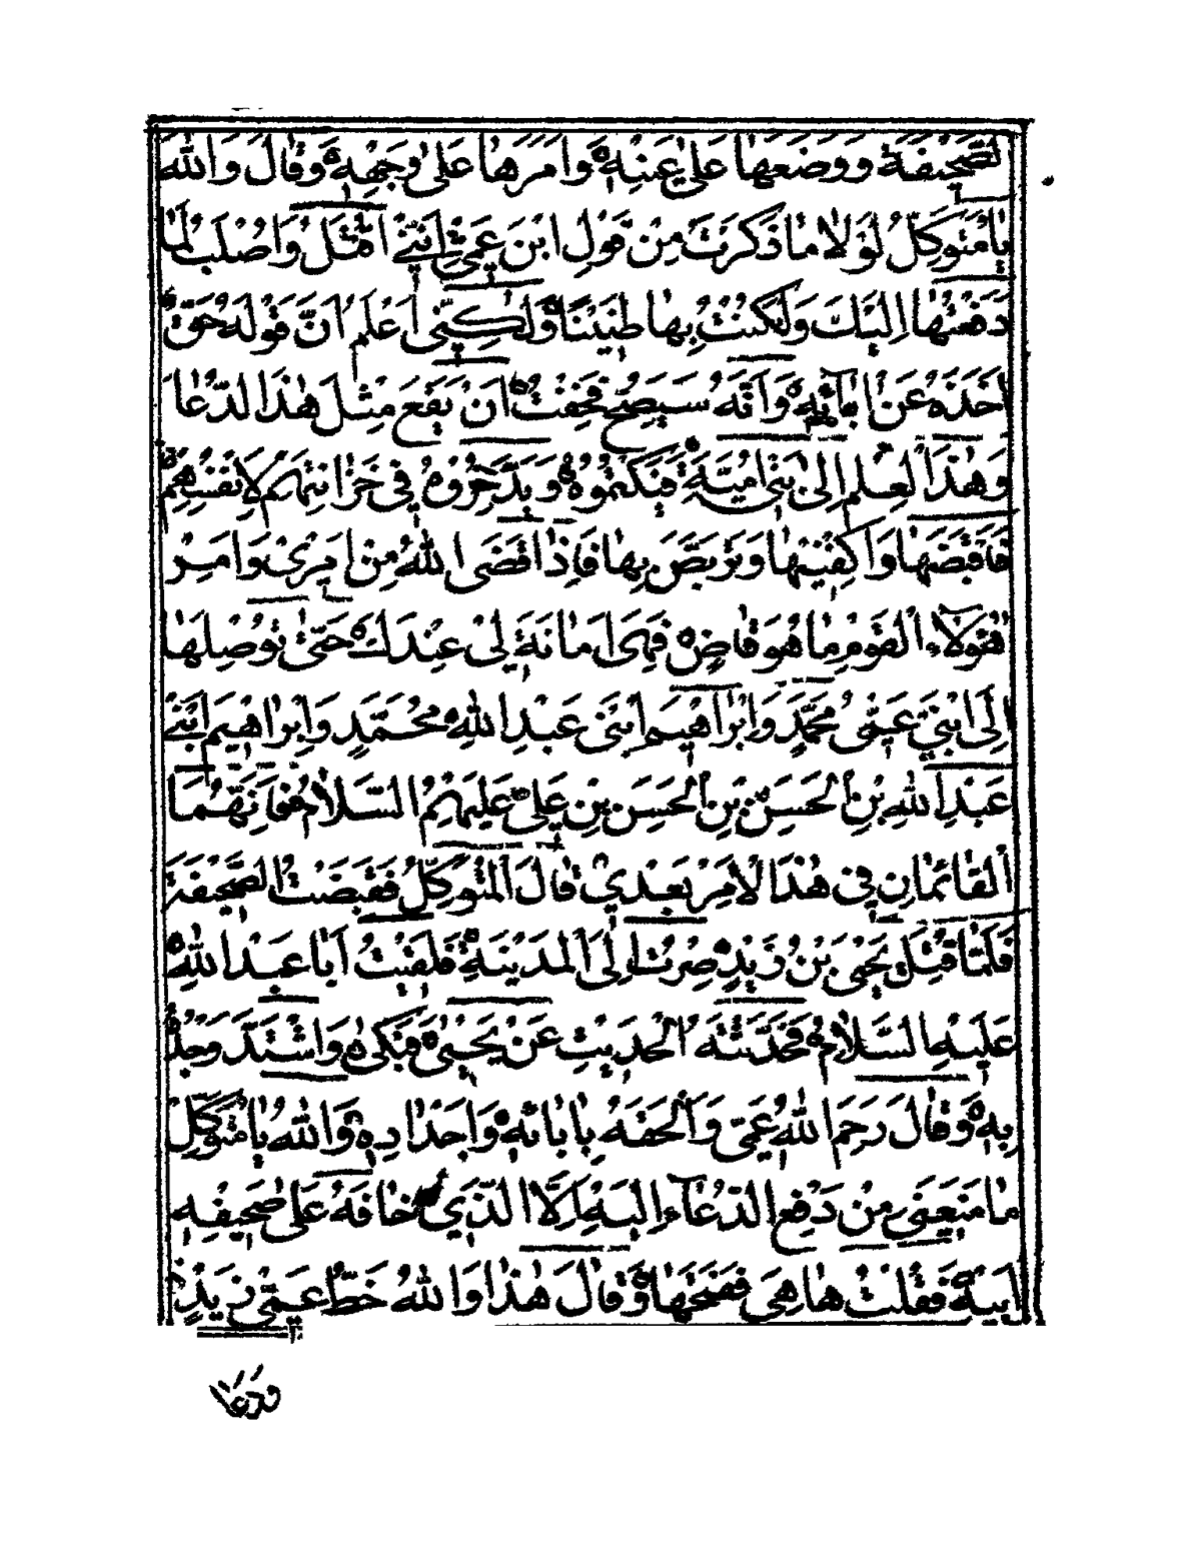 الصَّحِيفَةَ وَوَضَعَهَا عَلَى عَيْنِهِ وَأَمَرَّهَا عَلَى وَجْهِهِ وَقَالَ وَاللهِ
يَا مُتَوَكِّلُ لَوْلَا مَا ذَكَرْتَ مِنْ قَوْلِ ابْنِ عَمِّي إِنَّنِي أُقْتَلُ وَأُصْلَبُ لَمَا
دَفَعْتُهَا إِلَيْكَ وَلَكُنْتُ بِهَا ضَنِينًا وَلٰكِنِّي أَعْلَمُ أَنَّ قَوْلَهُ حَقٌّ
أَخَذَهُ عَنْ اٰبَائِهِ وَأَنَّهُ سَيَصِحُّ فَخِفْتُ أَنْ يَقَعَ مِثْلُ هٰذَا الدُّعَاءِ
وَهٰذَا الْعِلْمِ إِلَى بَنِي أُمَيَّةَ فَيَكْتُمُوهُ وَيَدَّخِرُوهُ فِي خَزَائِنِهِمْ لِأَنْفُسِهِمْ
فَاقْبِضْهَا وَاكْفِنِيهَا وَتَرَبَّصْ بِهَا فَإِذَا قَضَى اللهُ مِنْ أَمْرِي وَأَمْرِ
هٰؤُلَاءِ الْقَوْمِ مَا هُوَ قَاضٍ فَهِيَ أَمَانَةٌ لِي عِنْدَكَ حَتَّى تُوصِلَهَا
إِلَى ابْنَيْ عَمِّي مُحَمَّدٍ وَإِبْرَاهِيمَ ابْنَيْ عَبْدِ اللهِ مُحَمَّدٍ وَإِبْرَاهِيمَ ابْنَيْ
عَبْدِ اللهِ بْنِ الْحَسَنِ بْنِ الْحَسَنِ بْنِ عَلِيٍّ عَلَيْهِمُ السَّلَامُ فَإِنَّهُمَا
الْقَائِمَانِ فِي هٰذَا الْأَمْرِ بَعْدِي قَالَ الْمُتَوَكِّلُ فَقَبَضْتُ الصَّحِيفَةَ
فَلَمَّا قُتِلَ يَحْيَى بْنُ زَيْدٍ صِرْتُ إِلَى الْمَدِينَةِ فَلَقِيتُ أَبَا عَبْدِ اللهِ
عَلَيْهِ السَّلَامُ فَحَدَّثْتُهُ الْحَدِيثَ عَنْ يَحْيَى فَبَكَى وَاشْتَدَّ وَجْدُهُ
بِهِ وَقَالَ رَحِمَ اللهُ عَمِّي وَأَلْحَقَهُ بِاٰبَائِهِ وَأَجْدَادِهِ وَاللهِ يَا مُتَوَكِّلُ
مَا مَنَعَنِي مِنْ دَفْعِ الدُّعَاءِ إِلَيْهِ إِلَّا الَّذِي خَافَهُ عَلَى صَحِيفَةِ
أَبِيهِ فَقُلْتُ هَا هِيَ فَفَتَحَهَا وَقَالَ هٰذَا وَاللهِ خَطُّ عَمِّي زَيْدٍ
ودعا